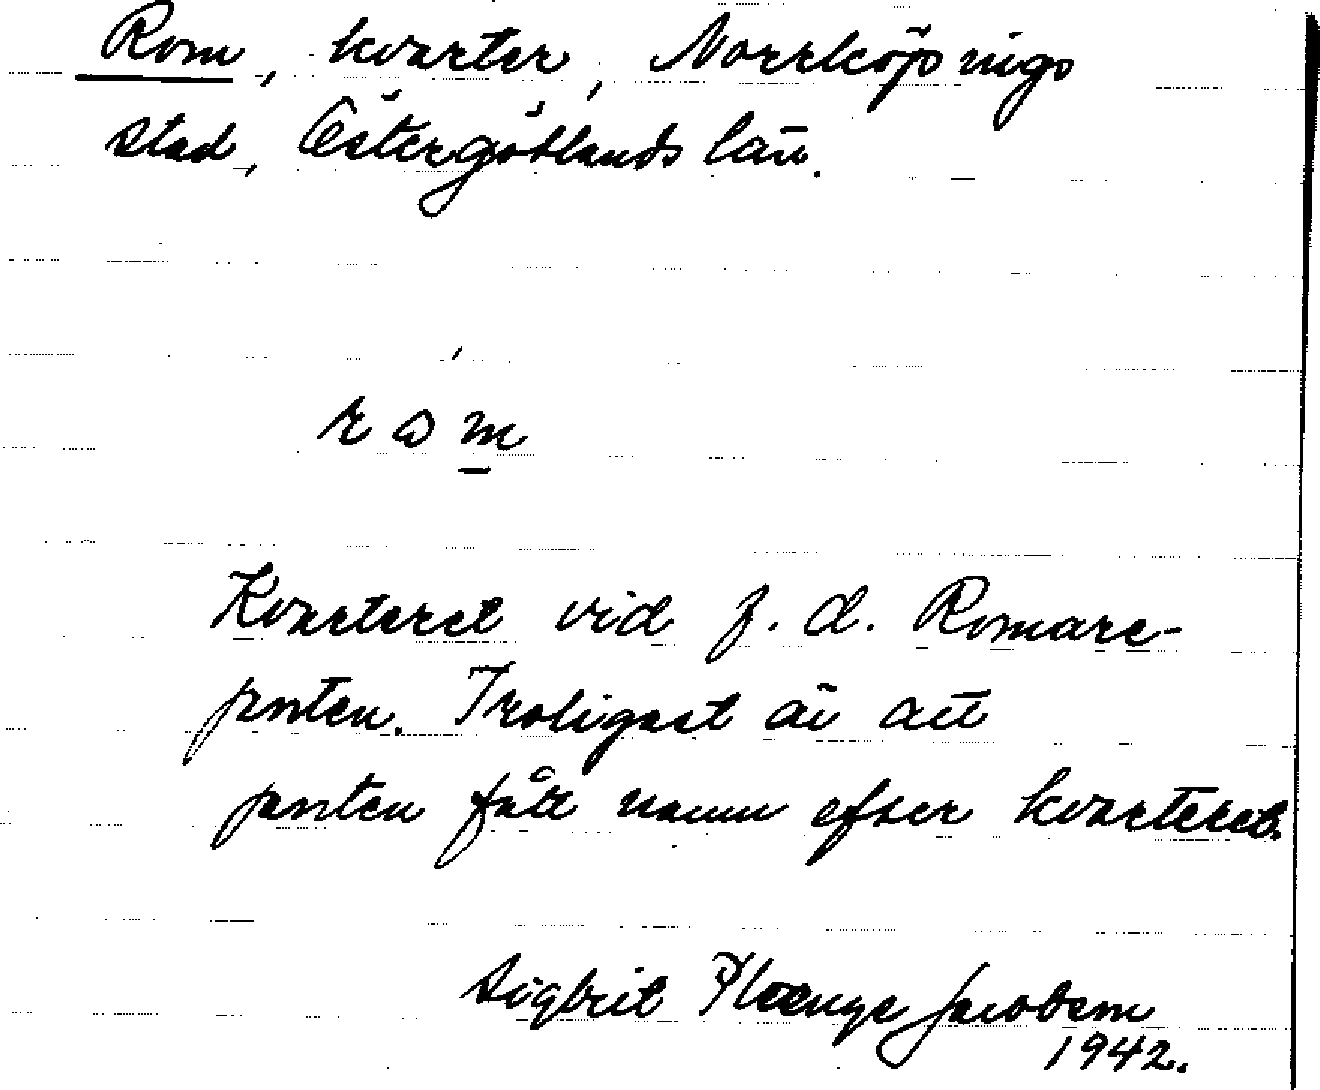 Rom, kvarter, Norrköpings
stad, Östergötlands län.
rom̲
Kvarteret vid f. d. Romare-
porten. Troligast är att
porten fått namn efter kvarteret.
Sigbrit Plænge Jacobson
1942.